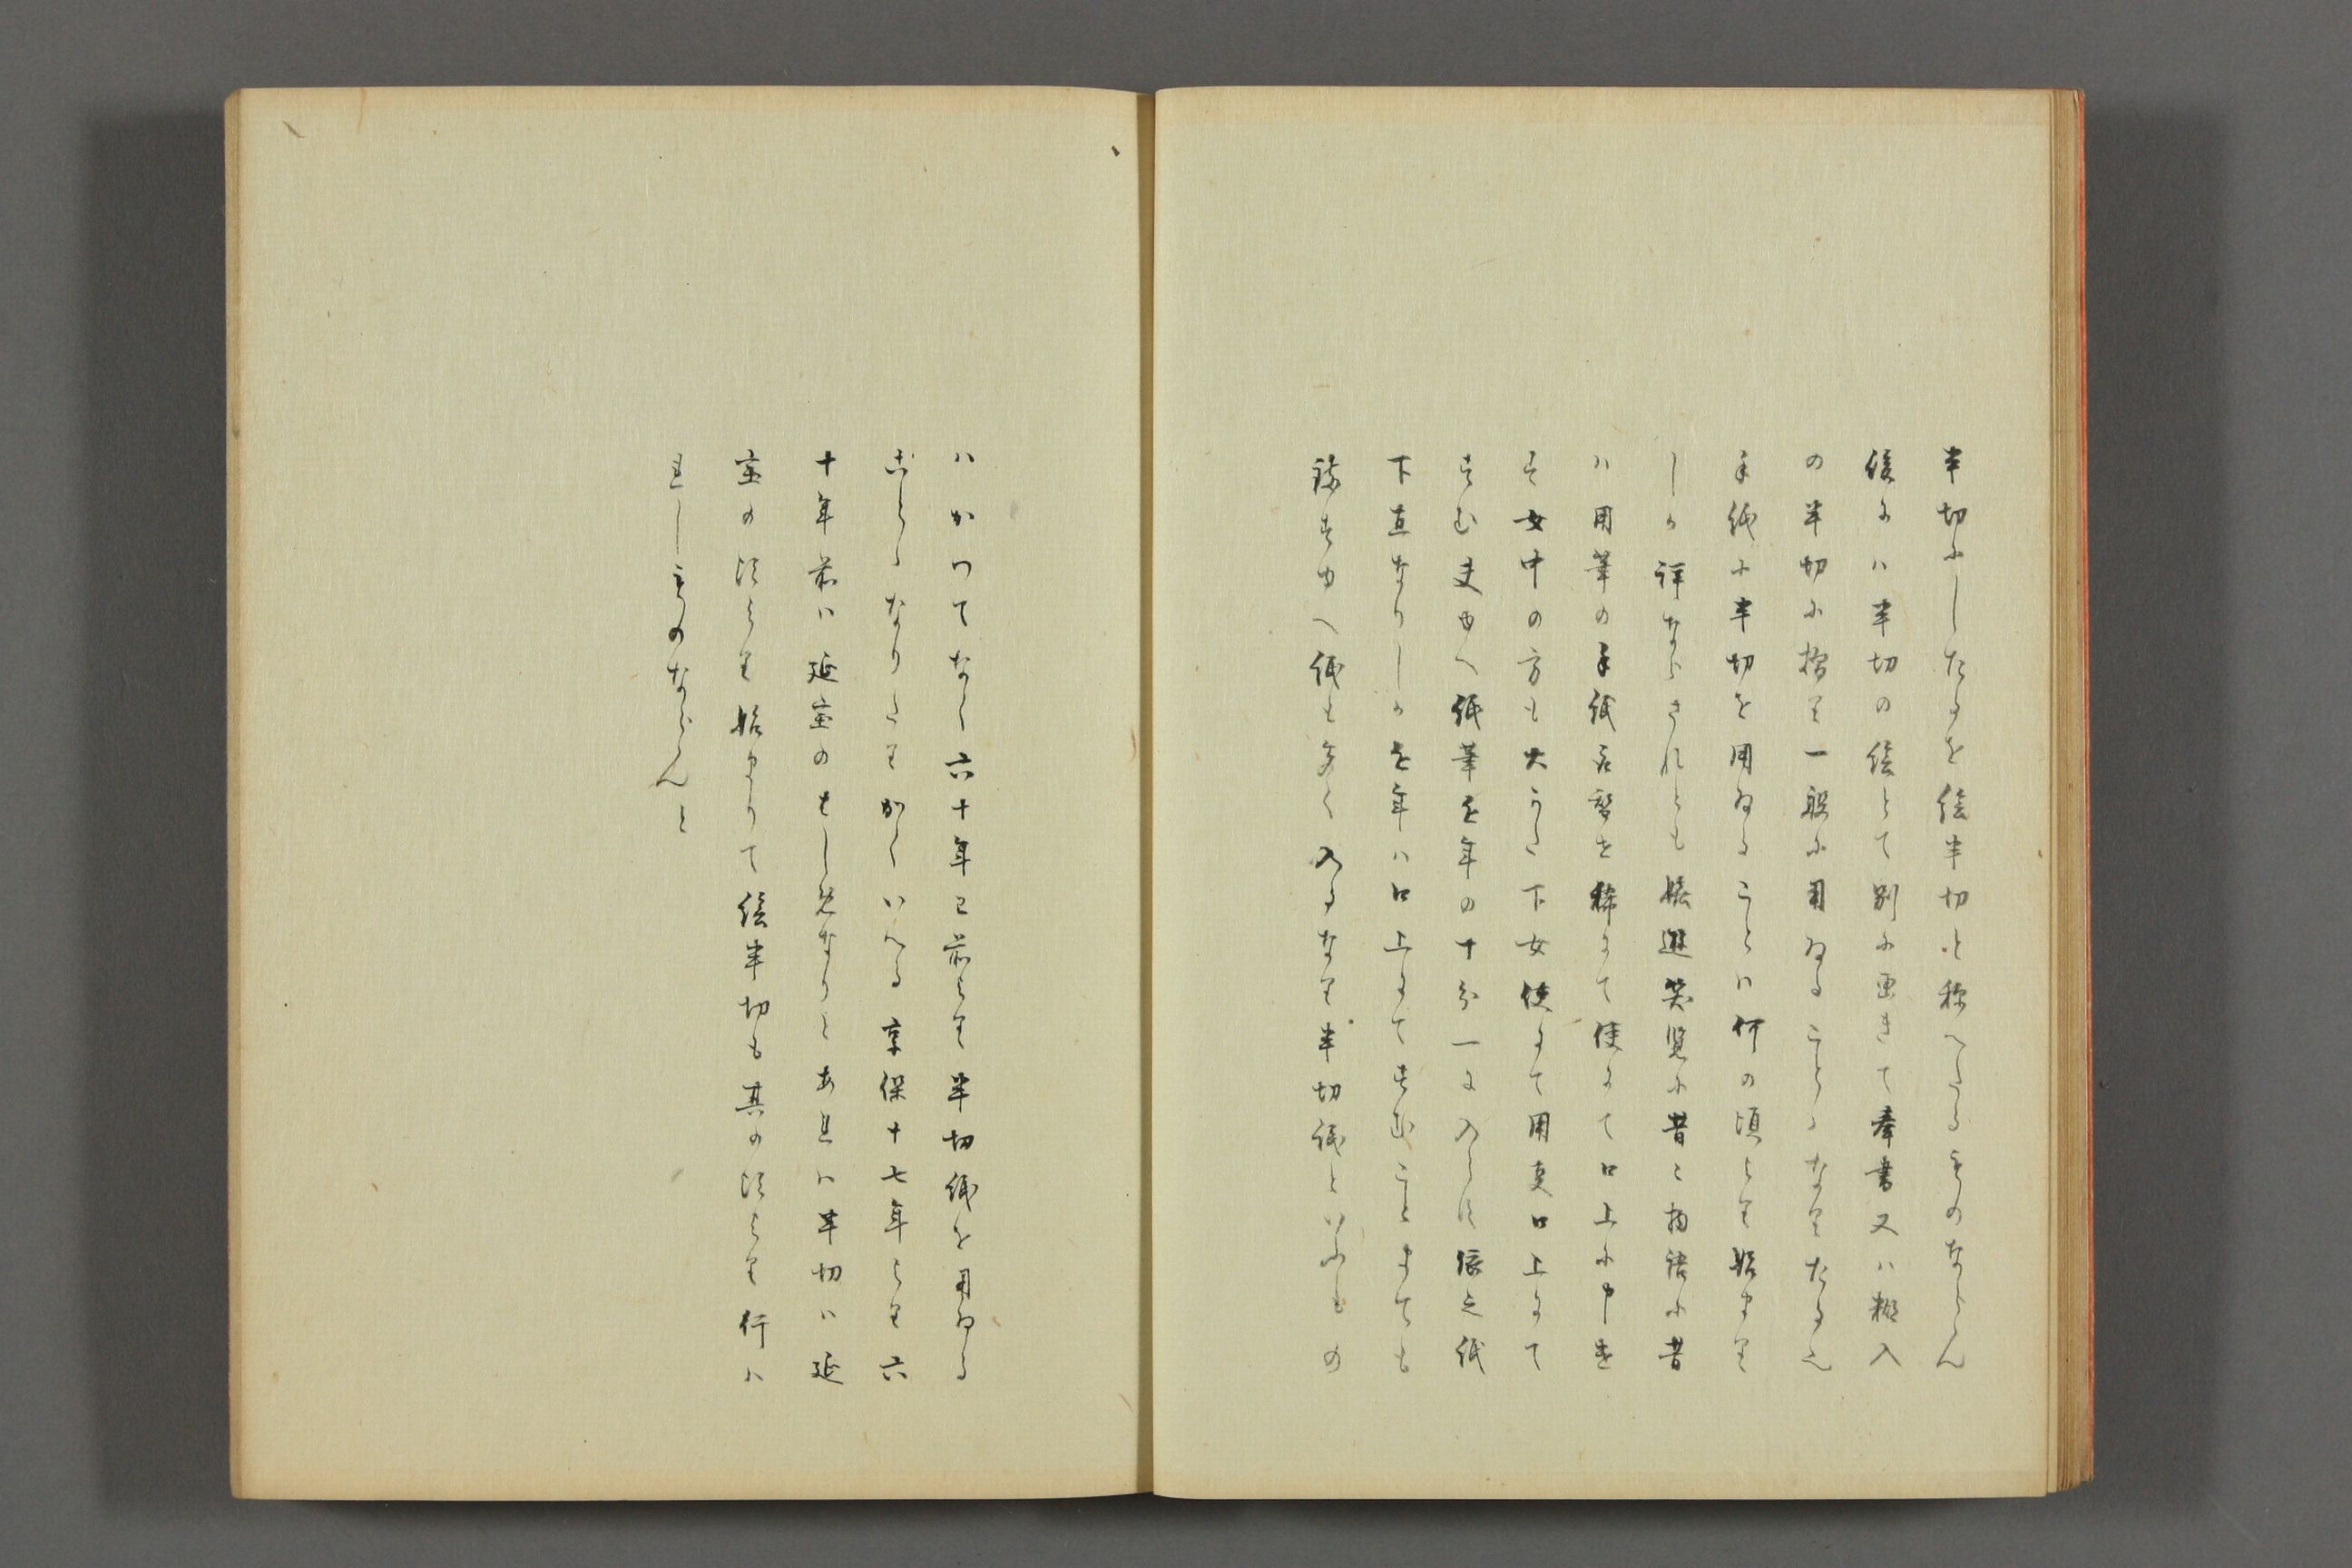 半切にしたるを絵半切と称へたるものならん
後には半切の絵とて別に画きて奉書又は糊入
の半切に摺り一般に用ゐることゝなりたる也
手紙に半切を用ゐることは何の頃より始まり
しか詳ならされとも嬉遊笑覧に昔々物語に昔
は用筆の手紙言 を稀にて使にて口上に申遣
す女中の方も大かた下女使にて用事口上にて
すむ夫ゆへ紙筆近年の十分一に入らす依之紙
下直なりしか近年は口上にてすむことまても
 すゆへ紙も多く入るなり半切紙といふもの
はかつてなく六十年已前より半切紙を用ゐる
ことゝなりたりかくいへる享保十七年より六
十年前は延宝のはしめなりとあれは半切は延
宝の頃より始まりて絵半切も其の頃より行は
れしものならんと